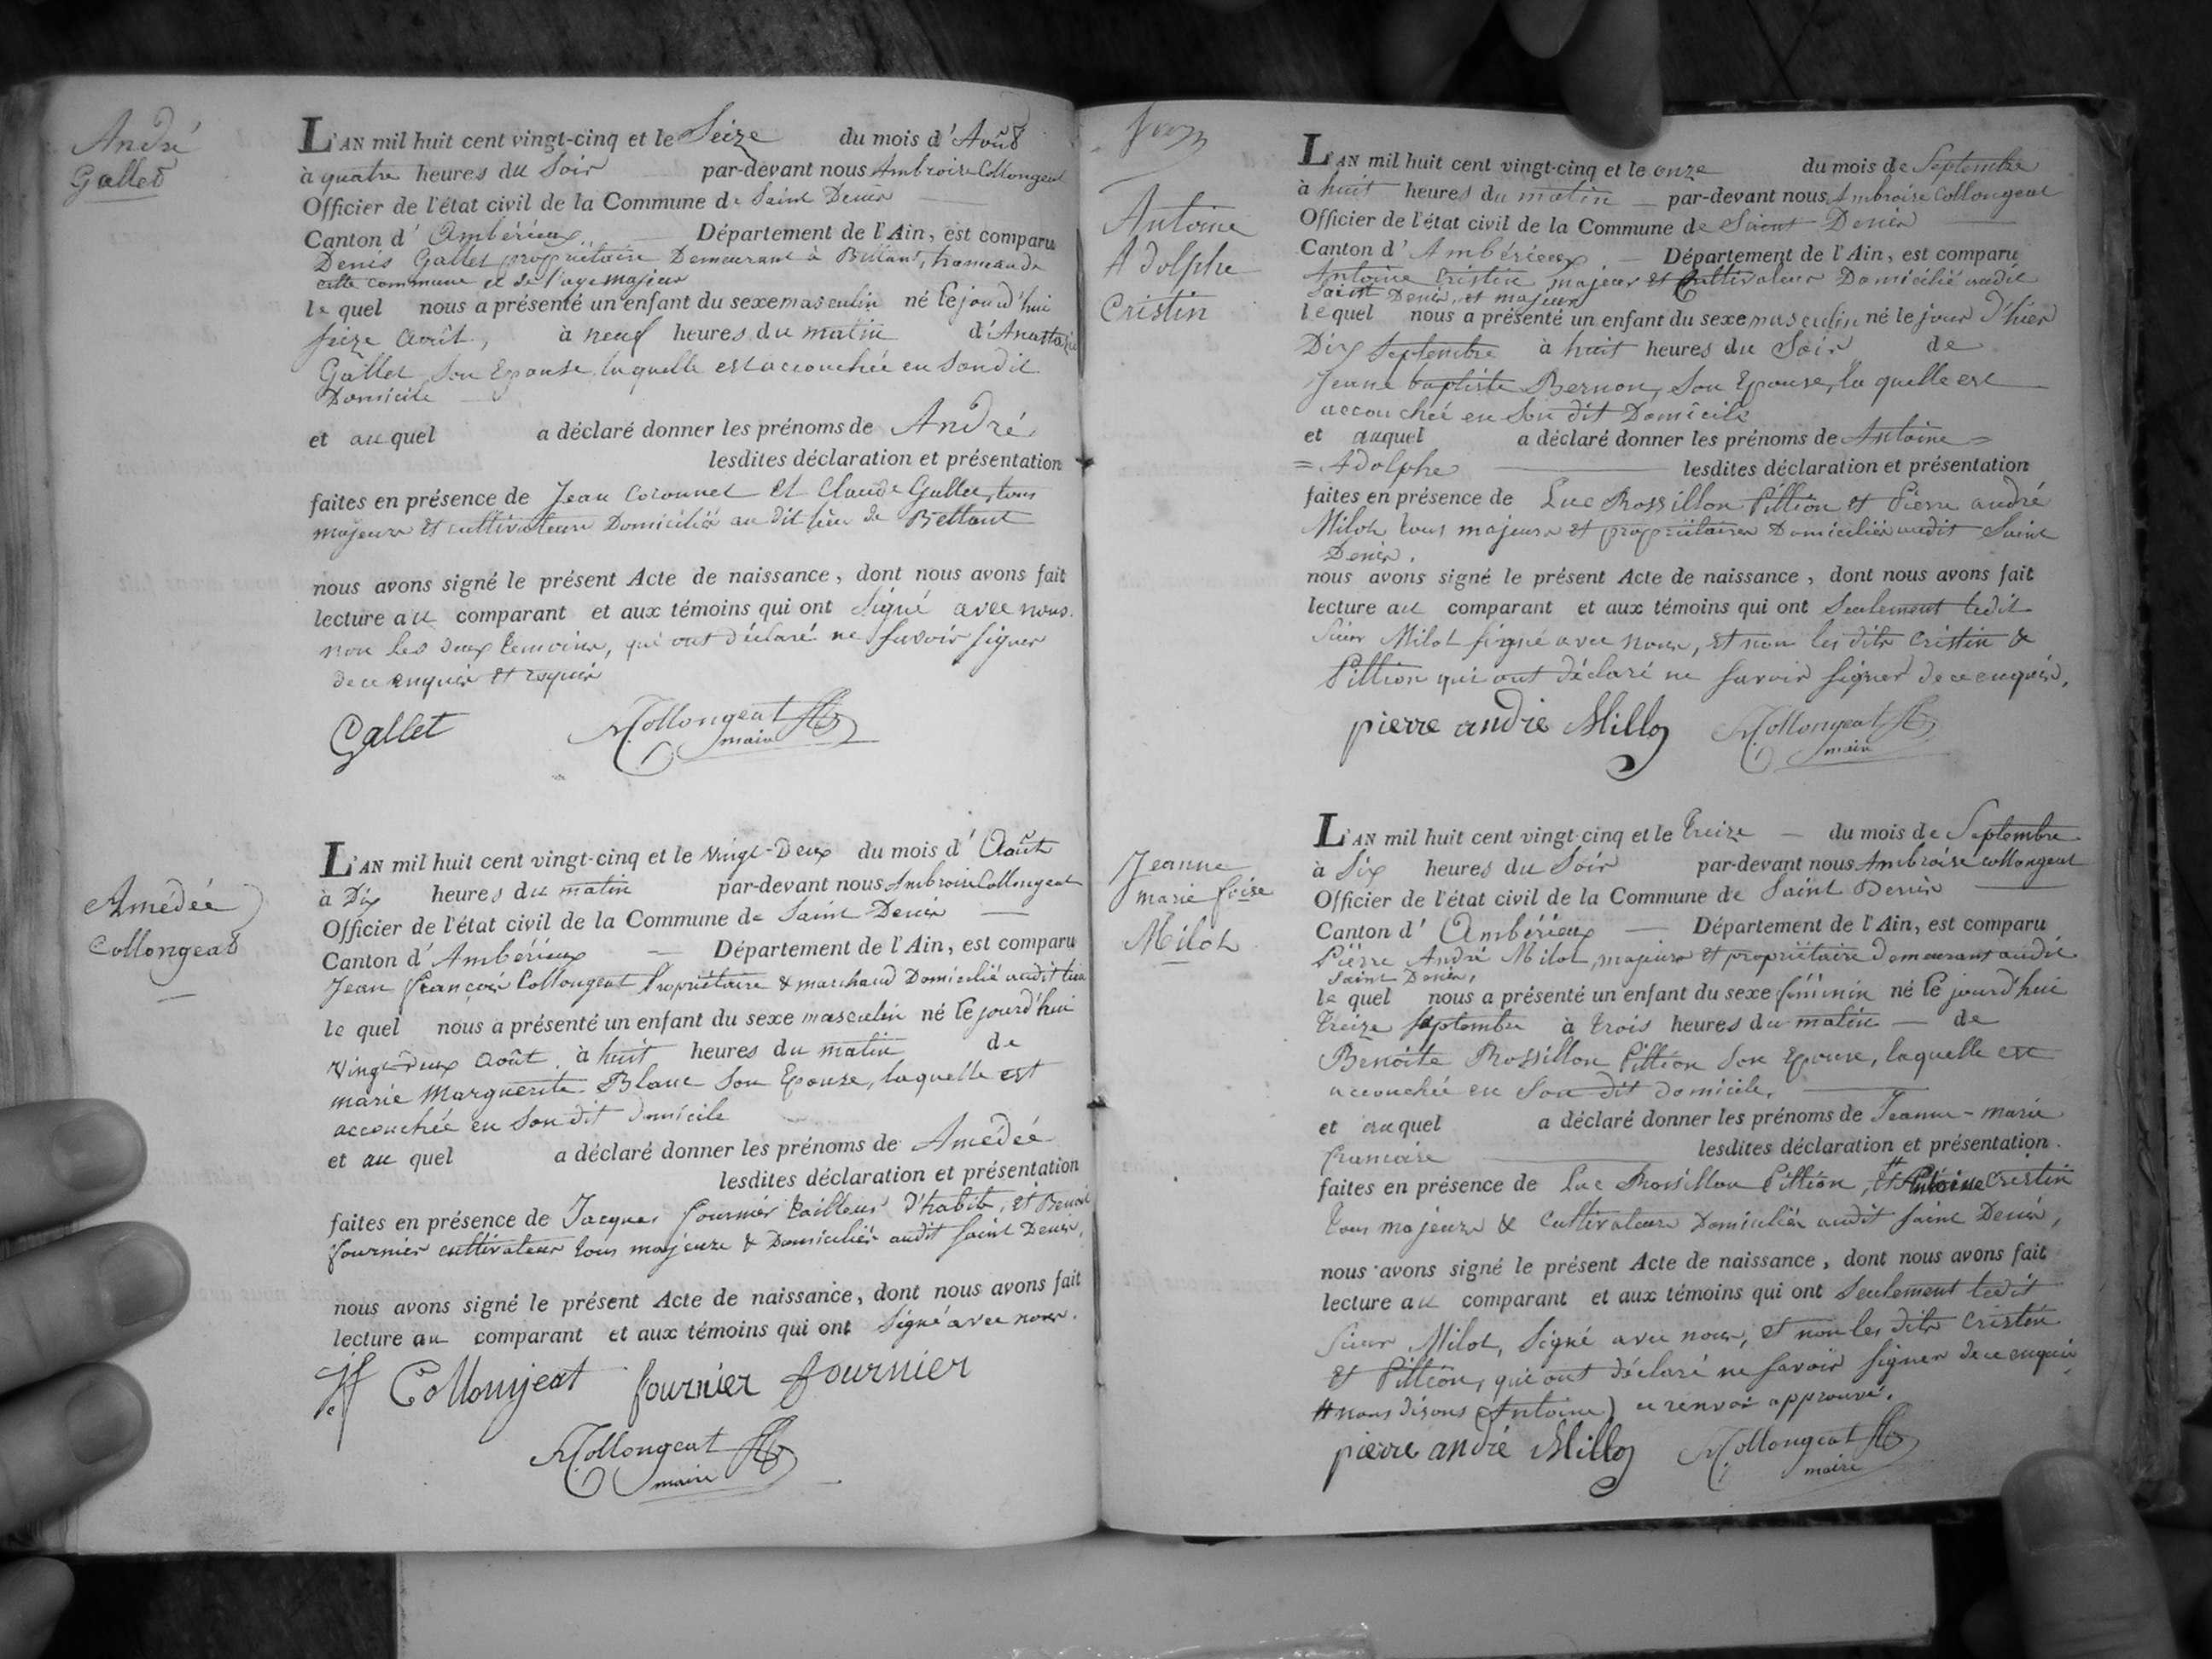 André
Gallet
L'AN mil huit cent vingt-cinq et le Seize du mois d'Août
à quatre heures du Soir par-devant nous Ambroise Collongeat
Officier de l'état civil de la Commune de Saint Denis
Canton d'Ambérieux Département de l'Ain, est comparu
Denis Gallet propriétaire Demeurant à Bettant, hameau de
cette commune et de l'age majeur
le quel nous a présenté un enfant du sexe masculin né le jourd'hui
seize Août, à neuf heures du matin d'Anastasie
Gallet, Son Epouse, laquelle est accouchée en son dit
Domicile
et au quel a déclaré donner les prénoms de André
lesdites déclaration et présentation
faites en présence de Jean Coronnet et Claude Gallet, tous
majeurs et cultivateurs Domiciliés au dit lieu de Bettant
nous avons signé le présent Acte de naissance, dont nous avons fait
lecture au comparant et aux témoins qui ont Signé avec nous.
non les deux témoins, qui ont déclaré ne savoir signer
de ce enquis et requis
Gallet Collongeat
maire
Amédée
Collongeat
L'AN mil huit cent vingt-cinq et le vingt-Deux du mois d'Août
à Dix heures du matin par-devant nous Ambroise Collongeat
Officier de l'état civil de la Commune de Saint Denis
Canton d'Ambérieux Département de l'Ain, est comparu
Jean François Collongeat Propriétaire & marchand Domicilié audit lieu
le quel nous a présenté un enfant du sexe masculin né le jourd'hui
vingt-deux Août à huit heures du matin de
marie Marguerite Blanc Son Epouse, laquelle est
accouchée en Son dit domicile
et au quel a déclaré donner les prénoms de Amédée
lesdites déclaration et présentation
faites en présence de Jacques fournier tailleur d'habits, et Benoit
fournier cultivateur tous majeurs & Domiciliés audit saint Denis,
nous avons signé le présent Acte de naissance, dont nous avons fait
lecture au comparant et aux témoins qui ont Signé avec nous.
Collonjeat fournier fournier
Collongeat
maire
Antoine
Adolphe
Cristin
L'AN mil huit cent vingt-cinq et le onze du mois de Septembre
à huit heures du matin par-devant nous Ambroise Collongeat
Officier de l'état civil de la Commune de Saint Denis
Canton d'Ambérieux Département de l'Ain, est comparu
Antoine Cristin majeur et Cultivateur Domicilié audit
Saint Denis, et majeur
le quel nous a présenté un enfant du sexe masculin né le jour d'hier
Dix Septembre à huit heures du Soir de
Jeanne baptiste Bernon, Son Epouse, la quelle est
accouchée en Son dit Domicile
et auquel a déclaré donner les prénoms de Antoine =
= Adolphe lesdites déclaration et présentation
faites en présence de Luc Rossillon Pittion et Pierre andré
Milot, tous majeurs et propriétaires Domiciliés audit Saint
Denis.
nous avons signé le présent Acte de naissance, dont nous avons fait
lecture au comparant et aux témoins qui ont Seulement ledit
Sieur Milot signé avec nous, et non les dits Cristin &
Pittion qui ont déclaré ne savoir signer de ce enquis,
pierre andré Millo Collongeat
maire
Jeanne
marie foise
Milot
L'AN mil huit cent vingt-cinq et le treize du mois de Septembre
à Six heures du Soir par-devant nous Ambroise Collongeat
Officier de l'état civil de la Commune de Saint Denis
Canton d'Ambérieux Département de l'Ain, est comparu
Pierre André Milot, majeur et propriétaire demeurant audit
Saint Denis,
le quel nous a présenté un enfant du sexe féminin né le jourd'hui
treize septembre à trois heures du matin de
Benoite Rossillon Pittion Son Epouse, laquelle est
accouchée en Son dit domicile,
et auquel a déclaré donner les prénoms de Jeanne-marie
francoise lesdites déclaration et présentation
faites en présence de Luc Rossillon Pittion, et Antoine Cristin
tous majeurs & Cultivateurs Domiciliés audit saint Denis,
nous avons signé le présent Acte de naissance, dont nous avons fait
lecture au comparant et aux témoins qui ont Seulement ledit
Sieur Milot, Signé avec nous, et non les dits Cristin
et Pittion, qui ont déclaré ne savoir signer de ce enquis,
# nous disons (Antoine) ce renvoi approuvé.
pierre andré Millo Collongeat
maire